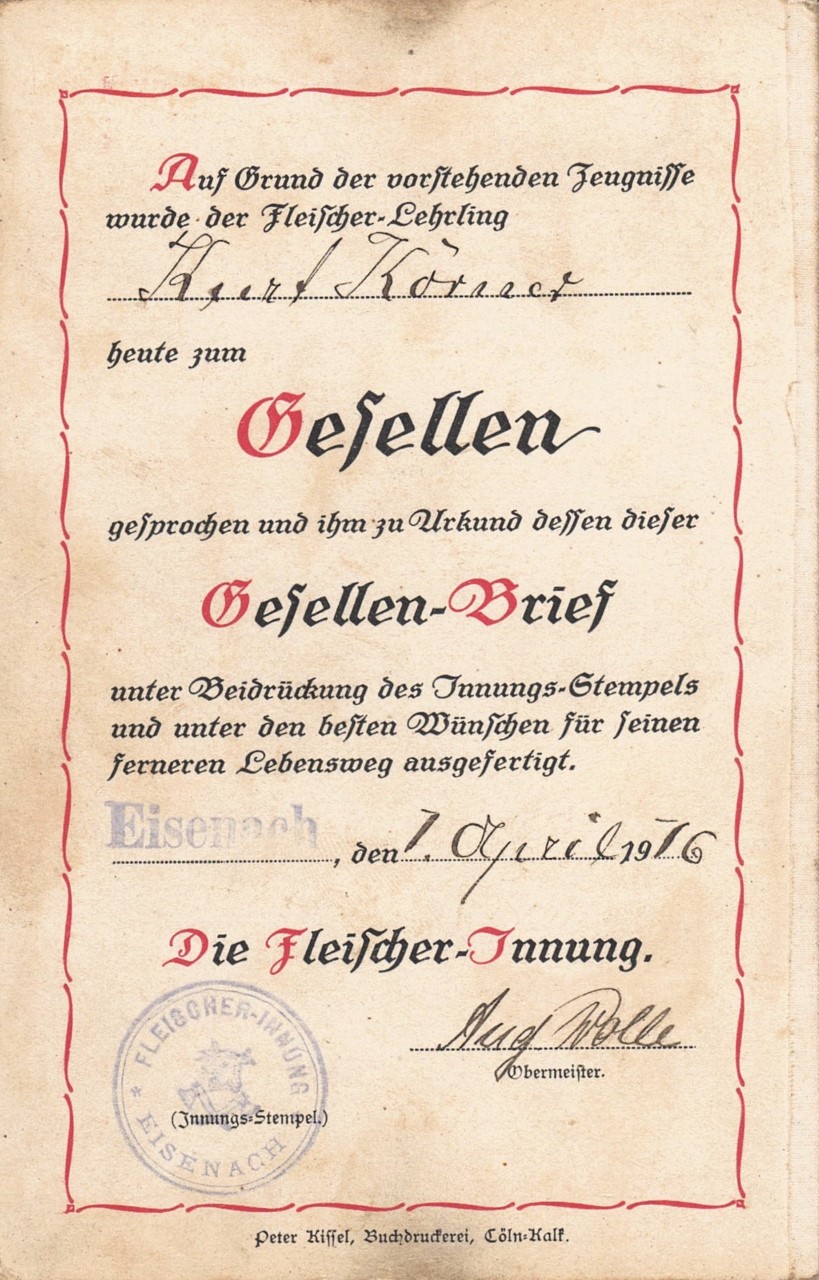 Auf Grund der vorstehenden Zeugnisse
wurde der Fleischer-Lehrling
Kurt Körner
heute zum
Gesellen
gesprochen und ihm zu Urkund dessen dieser
Gesellen-Brief
unter Beidrückung des Innungs-Stempels
und unter den besten Wünschen für seinen
ferneren Lebensweg ausgefertigt.
Eisenach, den 1. April 1916
Die Fleischer-Innung.
Aug
Obermeister.
FLEISCHER-INNUNG
* EISENACH
(Innungs-Stempel.)
Peter Kissel, Buchdruckerei, Cöln-Kalk.